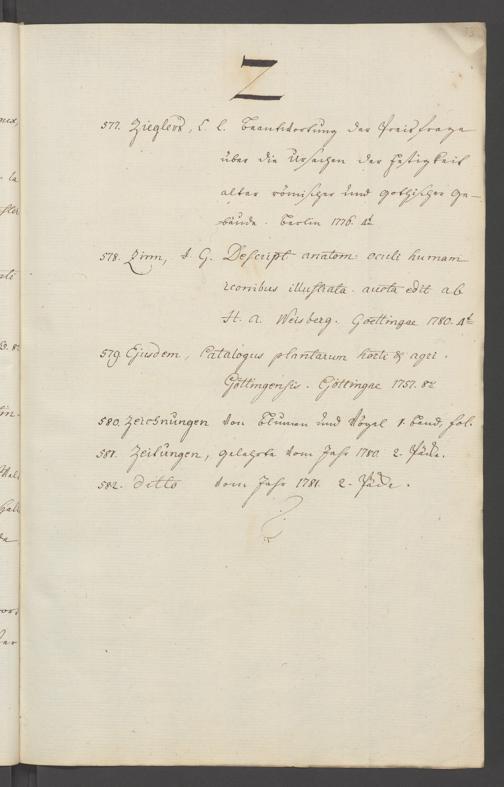 Z
577. Zieglers, C. L. Beantwortung der Preisfrage
über die Ursachen der Festigkeit
alter römischer und gothischer Ge-
bäude. Berlin 1776. 4t
578. Zinn, J. G. Descript anatom: oculi humani
iconibus illustrata. aucta edit ab
H. A. Weisberg. Goettingae 1780. 4t
579. Ejusdem, Catalogus plantarum horti & agri.
Göttingensis. Göttingae 1757. 8v
580. Zeichnungen von Blumen und Vögel 1. Band, fol.
581. Zeitungen, gelehrte vom Jahr 1780. 2.
582. ditto vom Jahr 1781. 2.